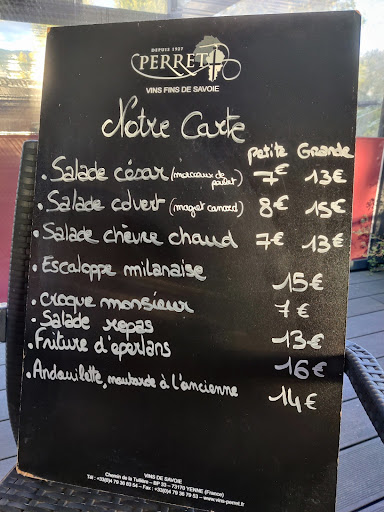 DEPUIS 1927
PERRET
VINS FINS DE SAVOIE
Notre Carte
Petite Grande
• Salade césar (morceaux de poulet) 7€ 13€
• Salade colvert (magret canard) 8€ 15€
• Salade chèvre chaud 7€ 13€
• Escaloppe milanaise 15€
• croque monsieur 7€
• Salade repas 13€
• Friture d'eperlans 16€
• Andouillette, moutarde à l'ancienne 14€
VINS DE SAVOIE
Chemin de la Tuilière – BP 33 – 73170 YENNE (France)
Tél : +33(0)4 79 36 63 54 – Fax : +33(0)4 79 36 70 63 – www.vins-perret.fr